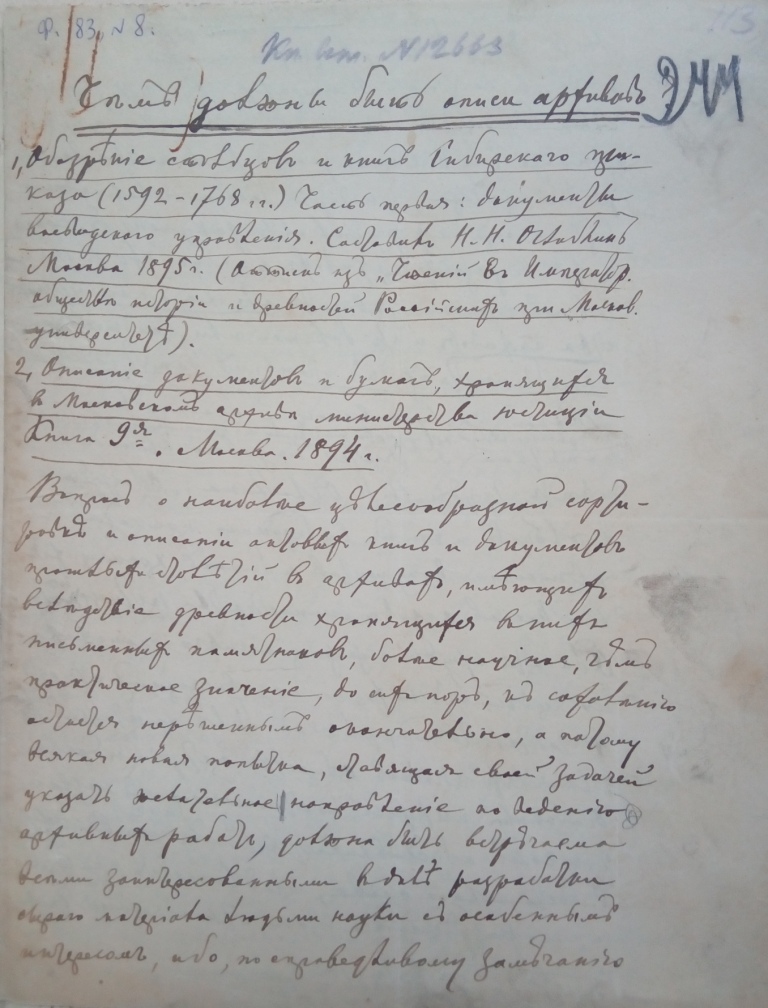 Ф. 83, N 8.
113
Кп. вт. N 12663
Чѣмъ должны быть описи архивовъ
244
1, Обозрѣніе столбцовъ и книгъ Сибирскаго при-
каза (1592-1768 гг.) Часть первая: документы
воеводскаго управленія. Составилъ Н. Н. Оглоблинъ
Москва 1895 г. (Оттискъ изъ „Чтеній въ Император.
обществѣ исторіи и древностей Россійскихъ при Москов.
университетѣ).
2, Описаніе документовъ и бумагъ, хранящихся
в Московскомъ архивѣ министерства юстиціи
Книга 9я. Москва. 1894 г.
Вопросъ о наиболѣе цѣлесообразной сорти-
ровкѣ и описаніи актовыхъ книгъ и документовъ
прошлыхъ столѣтій в архивахъ, имѣющихъ
вслѣдствіе древности хранящихся в нихъ
письменныхъ памятниковъ, болѣе научное, чѣмъ
практическое значеніе, до сихъ поръ, къ сожалѣнію
остается нерѣшеннымъ окончательно, а потому
всякая новая попытка, ставящая своей задачей
указать желательное направленіе по веденію
архивныхъ работъ, должна быть встрѣчаема
всѣми заинтересованными в дѣлѣ разработки
сыраго матеріала людьми науки съ особеннымъ
интересомъ, ибо, по справедливому замѣчанію